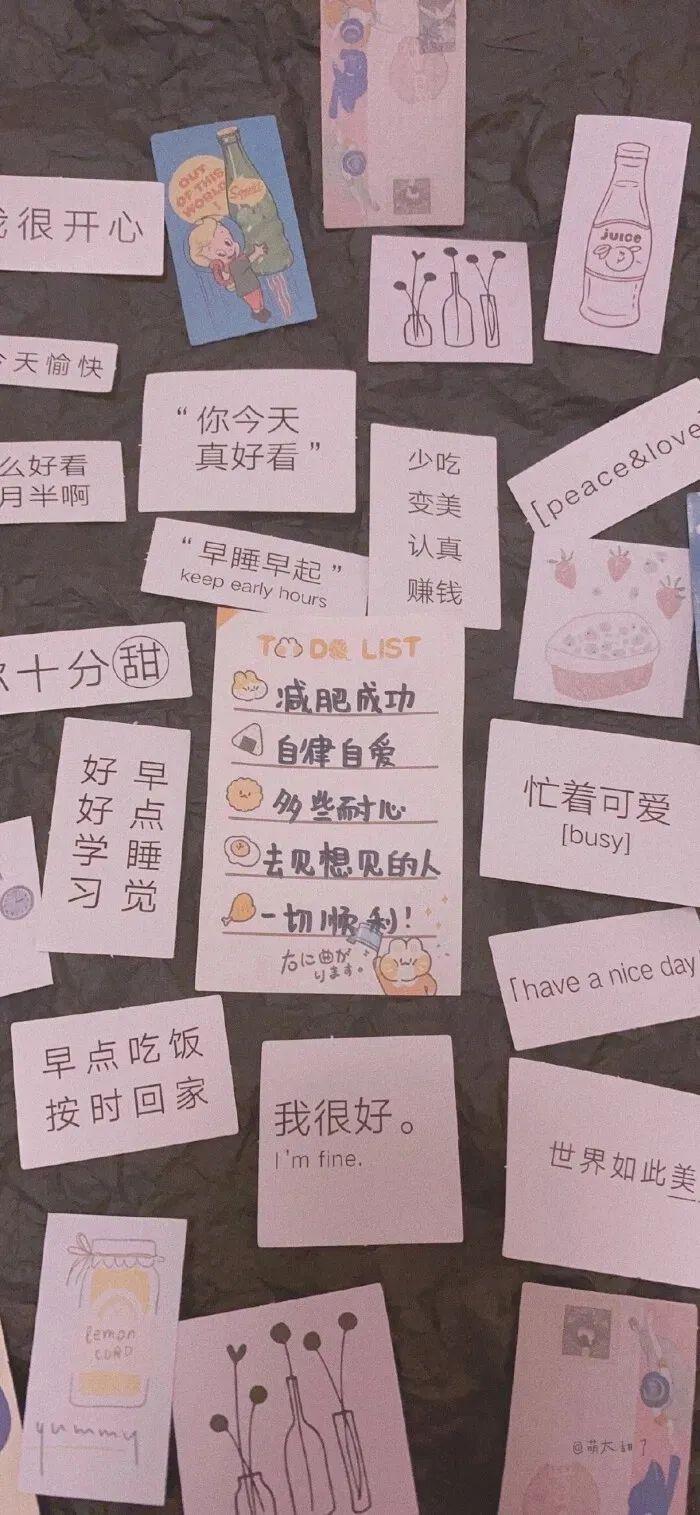 OUT
OF THIS
WORLD
!
Squirt
很开心
juice
今天愉快
“你今天
真好看”
么好看
月半啊
少吃
变美
认真
赚钱
[peace&love
“早睡早起”
keep early hours
十分甜
TO DO LIST
减肥成功
自律自爱
多些耐心
去见想见的人
一切顺利!
右に曲が
ります。
早点睡觉
好好学习
忙着可爱
[busy]
[have a nice day
早点吃饭
按时回家
我很好。
I'm fine.
世界如此美
lemon
CURD
yummy
@萌大甜了